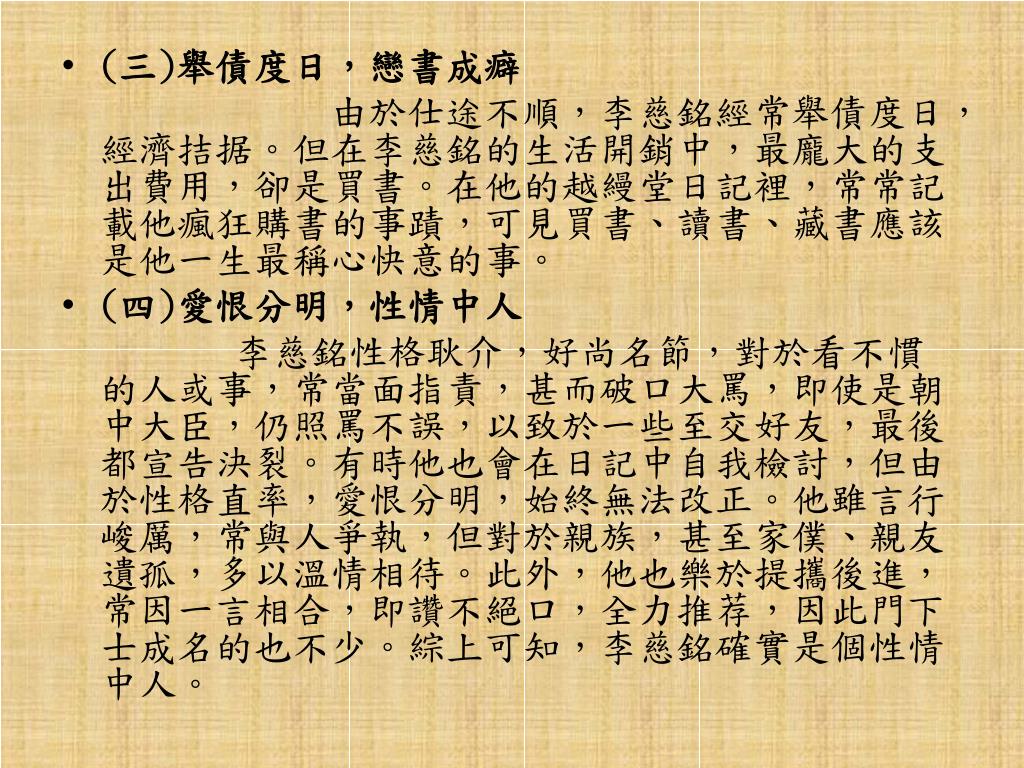 • (三)舉債度日，戀書成癖
由於仕途不順，李慈銘經常舉債度日，
經濟拮据。但在李慈銘的生活開銷中，最龐大的支
出費用，卻是買書。在他的越縵堂日記裡，常常記
載他瘋狂購書的事蹟，可見買書、讀書、藏書應該
是他一生最稱心快意的事。
• (四)愛恨分明，性情中人
李慈銘性格耿介，好尚名節，對於看不慣
的人或事，常當面指責，甚而破口大罵，即使是朝
中大臣，仍照罵不誤，以致於一些至交好友，最後
都宣告決裂。有時他也會在日記中自我檢討，但由
於性格直率，愛恨分明，始終無法改正。他雖言行
峻厲，常與人爭執，但對於親族，甚至家僕、親友
遺孤，多以溫情相待。此外，他也樂於提攜後進，
常因一言相合，即讚不絕口，全力推荐，因此門下
士成名的也不少。綜上可知，李慈銘確實是個性情
中人。